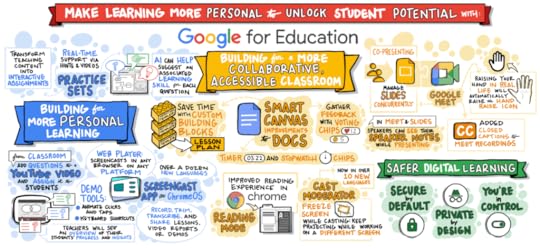 MAKE LEARNING MORE PERSONAL & UNLOCK STUDENT POTENTIAL WITH:
Google for Education
TRANSFORM
TEACHING
CONTENT
INTO
INTERACTIVE
ASSIGNMENTS
REAL-TIME
SUPPORT VIA
HINTS & VIDEOS
PRACTICE
SETS
AI CAN HELP
SUGGEST AN
ASSOCIATED
LEARNING
SKILL for EACH
QUESTION
BUILDING for a MORE
COLLABORATIVE
ACCESSIBLE CLASSROOM
CO-PRESENTING
MANAGE
SLIDES
CONCURRENTLY
GOOGLE
MEET
RAISING YOUR
HAND IN REAL
LIFE WILL
AUTOMATICALLY
RAISE the
HAND RAISE ICON
BUILDING for
MORE PERSONAL
LEARNING
SAVE TIME
WITH
CUSTOM
BUILDING
BLOCKS
LESSON
PLAN
SMART
CANVAS
IMPROVEMENTS
to DOCS
GATHER
FEEDBACK
WITH
VOTING
CHIPS
TIMER 05:22 AND STOPWATCH CHIPS
IN MEET & SLIDES
SPEAKERS CAN SEE THEIR
SPEAKER NOTES
WHILE PRESENTING
CC
ADDED
CLOSED
CAPTIONS
to
MEET RECORDINGS
from CLASSROOM
ADD QUESTIONS to a
YOUTUBE VIDEO
AND
ASSIGN to
STUDENTS
WEB PLAYER
SCREENCASTS IN ANY
BROWSER ON ANY
PLATFORM
OVER A DOZEN
NEW LANGUAGES
DEMO
TOOLS:
ANIMATE CLICKS
AND TAPS
KEYBOARD SHORTCUTS
SCREENCAST
APP for ChromeOS
RECORD, TRIM,
TRANSCRIBE, AND
SHARE LESSONS,
VIDEO REPORTS
OR DEMOS
TEACHERS WILL SEE
AN OVERVIEW OF THEIR
STUDENTS' PROGRESS and INSIGHTS
IMPROVED READING
EXPERIENCE IN
chrome
READING
MODE
NOW IN OVER
10 NEW LANGUAGES
CAST MODERATOR
FREEZE
SCREEN
WHILE CASTING & KEEP
PROJECTING WHILE WORKING
ON A DIFFERENT SCREEN
SAFER DIGITAL LEARNING
SECURE
by
DEFAULT
PRIVATE
by
DESIGN
YOU'RE
IN
CONTROL